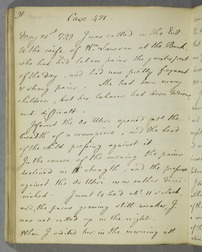 Case 491
May 21st 1789 I was called in the
to the wife of Wm at the Bank
who had had labour pains the greatest part
of the day, and had now pretty frequent
& strong pains. She had born many
children, but her labours had been tedious
and difficult.
I found the Os Uteri opened to the
breadth of a crown piece, and the head
of the child pressing against it
In the course of the evening the pains
declined in strength, and the pressure
against the Os Uteri was rather dimi-
nished. I went to bed at 11 o'clock
and, the pains growing still weaker I
was not called up in the night.
When I visited her in the morning at